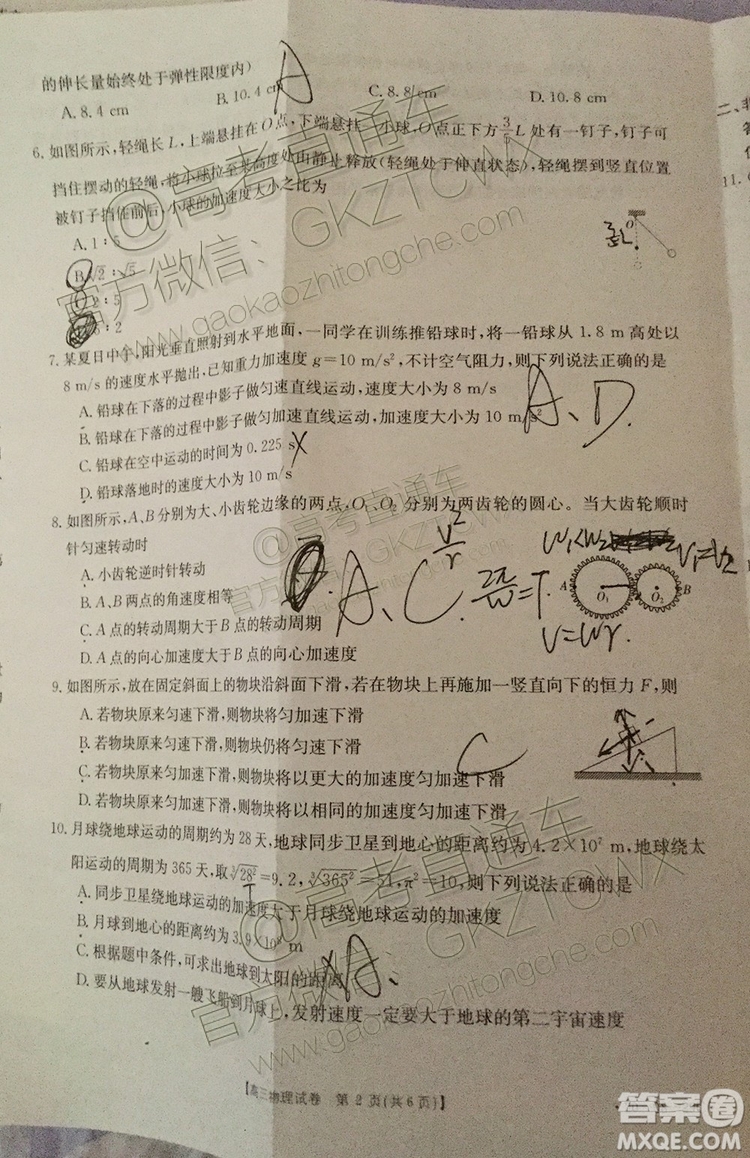 的伸长量始终处于弹性限度内)
A
A. 8.4 cm B. 10.4 cm C. 8.8 cm D. 10.8 cm
6. 如图所示,轻绳长 L,上端悬挂在 O 点,下端悬挂一小球,O 点正下方 L 处有一钉子,钉子可
挡住摆动的轻绳,将小球拉至某高度处由静止释放(轻绳处于伸直状态),轻绳摆到竖直位置
被钉子挡住前后,小球的加速度大小之比为
A. 1∶5
B. √2∶√5
2∶5
∶2
O
7. 某夏日中午,阳光垂直照射到水平地面,一同学在训练推铅球时,将一铅球从 1.8 m 高处以
8 m/s 的速度水平抛出,已知重力加速度 g=10 m/s²,不计空气阻力,则下列说法正确的是
A. 铅球在下落的过程中影子做匀速直线运动,速度大小为 8 m/s
B. 铅球在下落的过程中影子做匀加速直线运动,加速度大小为 10 m/s²
C. 铅球在空中运动的时间为 0.225 s
D. 铅球落地时的速度大小为 10 m/s
A、D.
8. 如图所示,A、B 分别为大、小齿轮边缘的两点,O₁、O₂ 分别为两齿轮的圆心。当大齿轮顺时
针匀速转动时
A. 小齿轮逆时针转动
B. A、B 两点的角速度相等
C. A 点的转动周期大于 B 点的转动周期
D. A 点的向心加速度大于 B 点的向心加速度
A、C
v²/r
2π/w=T.
w₁<w₂
v₁=v₂
v=wr.
A O₁ O₂ B
9. 如图所示,放在固定斜面上的物块沿斜面下滑,若在物块上再施加一竖直向下的恒力 F,则
A. 若物块原来匀速下滑,则物块将匀加速下滑
B. 若物块原来匀速下滑,则物块仍将匀速下滑
C. 若物块原来匀加速下滑,则物块将以更大的加速度匀加速下滑
D. 若物块原来匀加速下滑,则物块将以相同的加速度匀加速下滑
C
10. 月球绕地球运动的周期约为 28 天,地球同步卫星到地心的距离约为 4.2×10⁷ m,地球绕太
阳运动的周期为 365 天,取∛28²=9.2,∛365²=51,π²=10,则下列说法正确的是
A. 同步卫星绕地球运动的加速度大于月球绕地球运动的加速度
B. 月球到地心的距离约为 3.9×10⁸ m
C. 根据题中条件,可求出地球到太阳的距离
D. 要从地球发射一艘飞船到月球上,发射速度一定要大于地球的第二宇宙速度
A.
【高三物理试卷 第 2 页(共 6 页)】
二、非
答
11.
@高考直通车
官方微信:GKZTCWX
www.gaokaozhitongche.com
@高考直通车
官方微信:GKZTCWX
@高考直通车
官方微信:GKZTCWX
www.gaokaozhitongche.com
答案圈
MXQE.COM